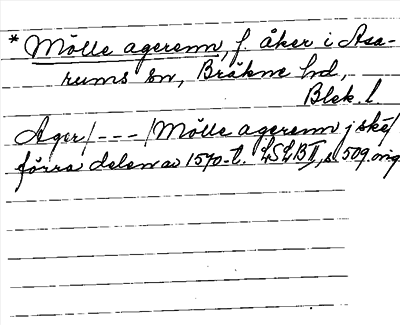 * Mölle agerenn, f. åker i Asa-
rums sn, Bräkne hd,
Blek. l.
Ager/---/Mölle agerenn j ske/
förra delen av 1570-t. LSLB II, s. 509. orig.